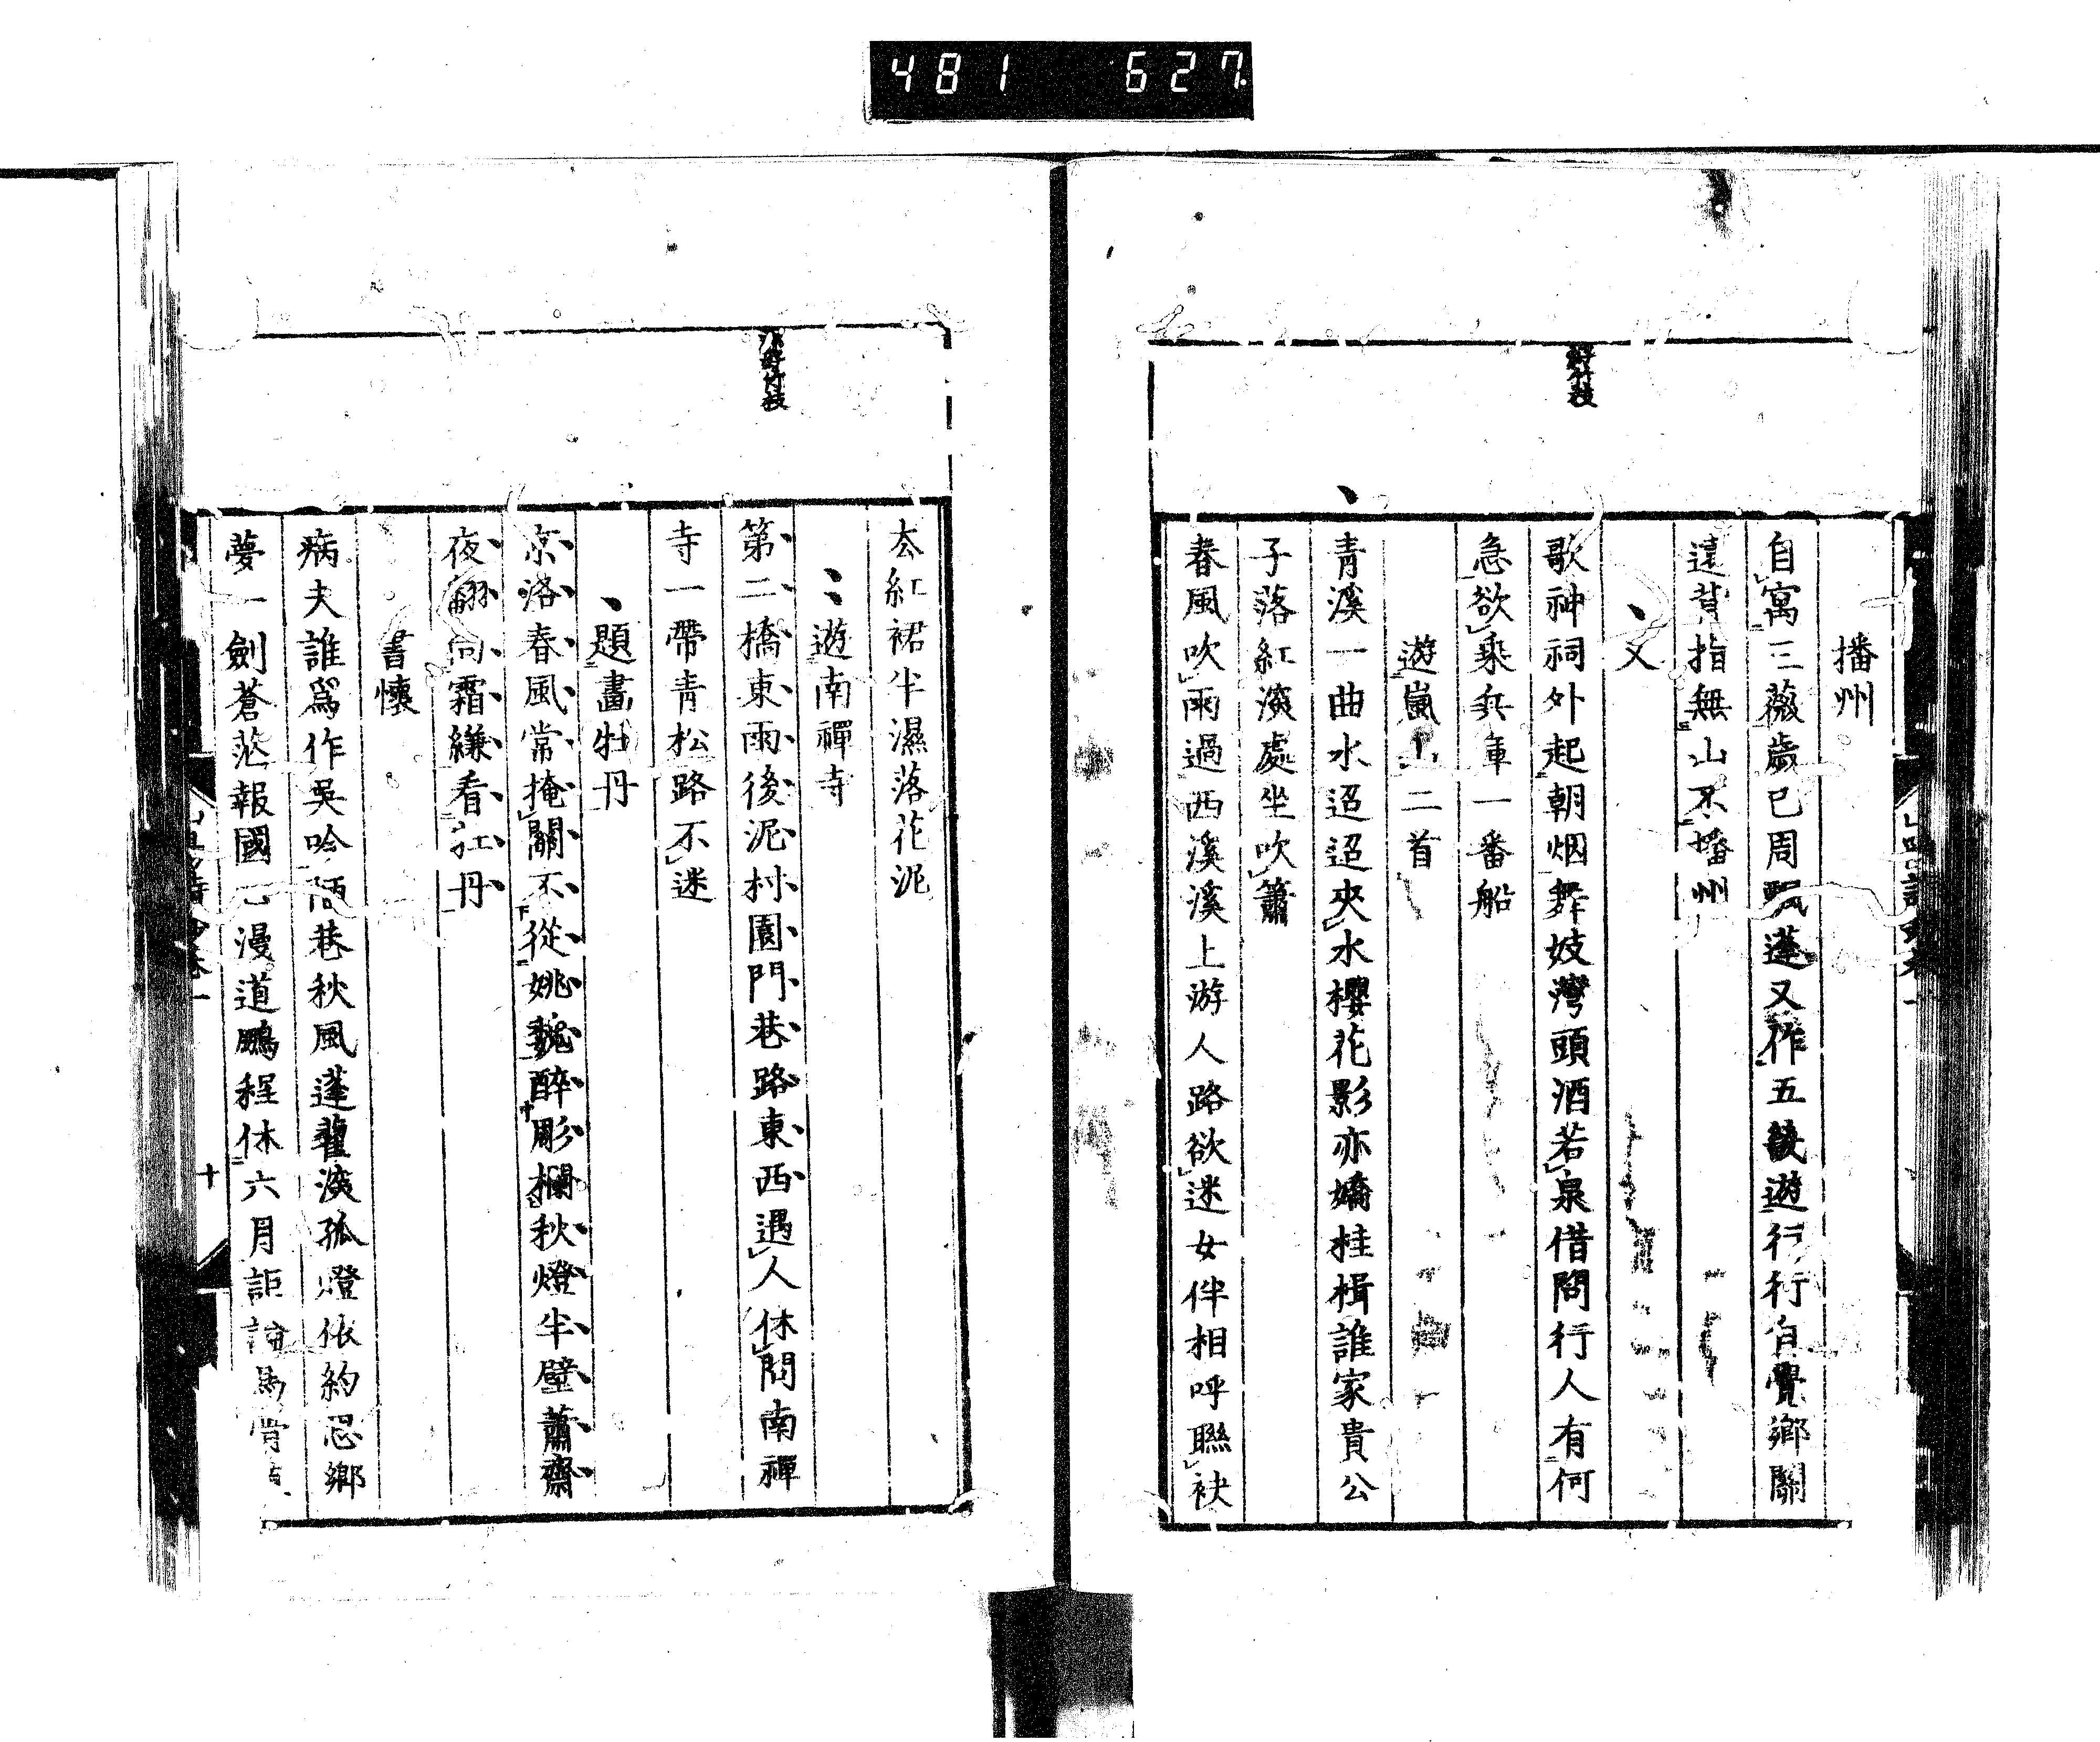 481 627
好竹枝
播州
自寓三薇歲已周飄蓬又作五畿遊行行自覺鄉關
遠貧指無山不播州
又
歌神祠外起朝烟舞妓灣頭酒若泉借問行人有何
急欲乘兵庫一番船
遊嵐山二首
青溪一曲水迢迢夾水櫻花影亦嬌桂楫誰家貴公
子落紅深處坐吹簫
春風吹雨過西溪溪上游人路欲迷女伴相呼聯袂
好竹枝
去紅裙半濕落花泥
遊南禪寺
第二橋東雨後泥村園門巷路東西遇人休問南禪
寺一帶青松路不迷
題畫牡丹
京洛春風常掩關不從姚魏醉彫欄秋燈半壁蕭齋
夜翻向霜縑看紅丹
書懷
病夫誰爲作吳吟陋巷秋風蓬藋深孤燈依約思鄉
夢一劍蒼茫報國心漫道鵬程休六月詎
十